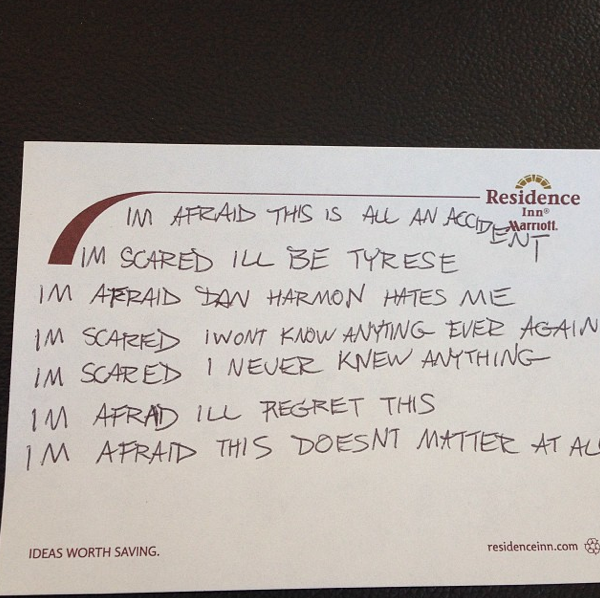 Residence
Inn®
Marriott.
IM AFRAID THIS IS ALL AN ACCIDENT
IM SCARED ILL BE TYRESE
IM AFRAID DAN HARMON HATES ME
IM SCARED I WONT KNOW ANYTING EVER AGAIN
IM SCARED I NEVER KNEW ANYTHING
IM AFRAD ILL REGRET THIS
IM AFRAID THIS DOESNT MATTER AT AL
IDEAS WORTH SAVING.
residenceinn.com